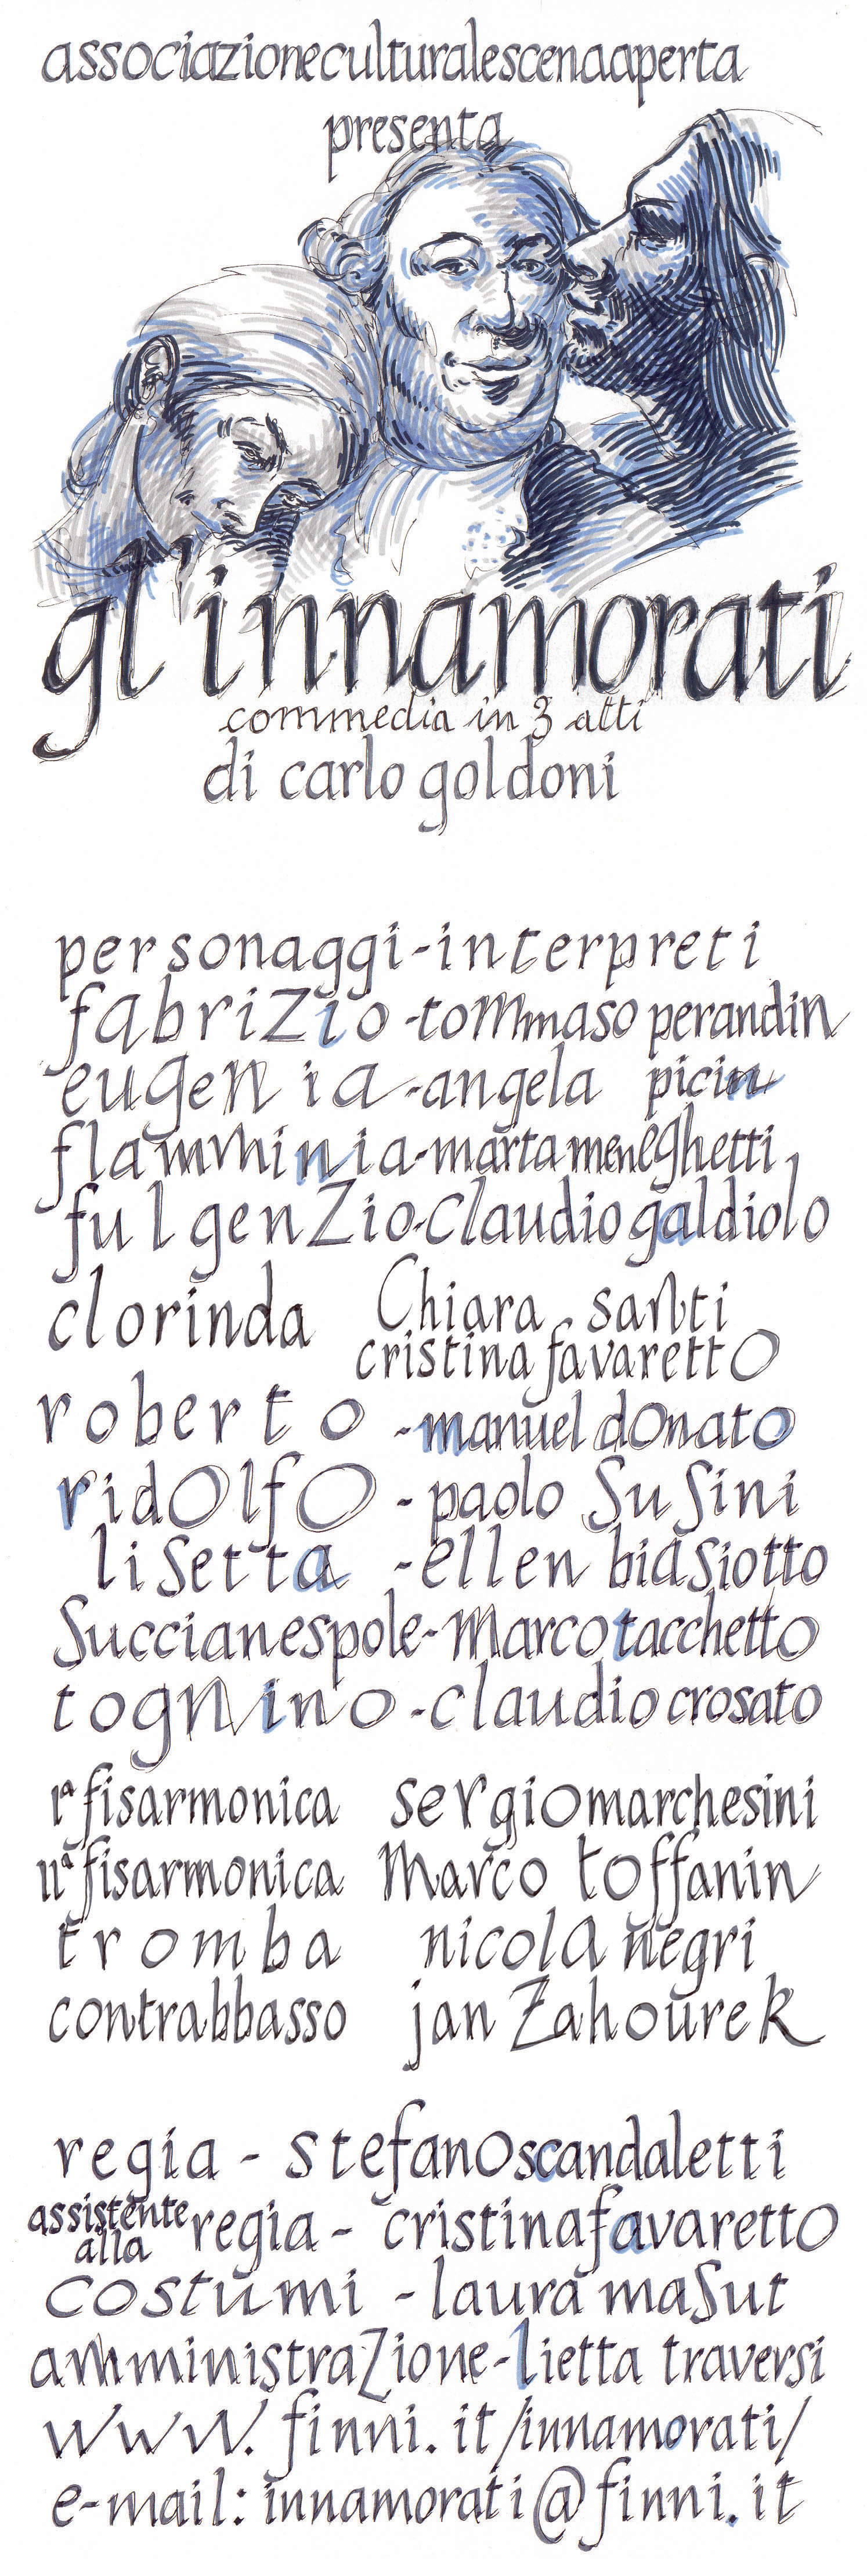 associazioneculturalescenaaperta
presenta
gl'innamorati
commedia in 3 atti
di carlo goldoni
personaggi-interpreti
fabrizio-tommaso perandin
eugenia-angela picin
flamminia-marta meneghetti
fulgenzio-claudio galdiolo
clorinda Chiara santi
cristina favaretto
roberto-manuel donato
ridolfo-paolo susini
lisetta-ellen biasiotto
succianespole-marco tacchetto
tognino-claudio crosato
Iª fisarmonica sergio marchesini
IIª fisarmonica Marco toffanin
tromba nicola negri
contrabbasso jan Zahourek
regia - stefano scandaletti
assistente alla regia - cristina favaretto
costumi - laura masut
amministrazione-lietta traversi
www.finni.it/innamorati/
e-mail: innamorati@finni.it